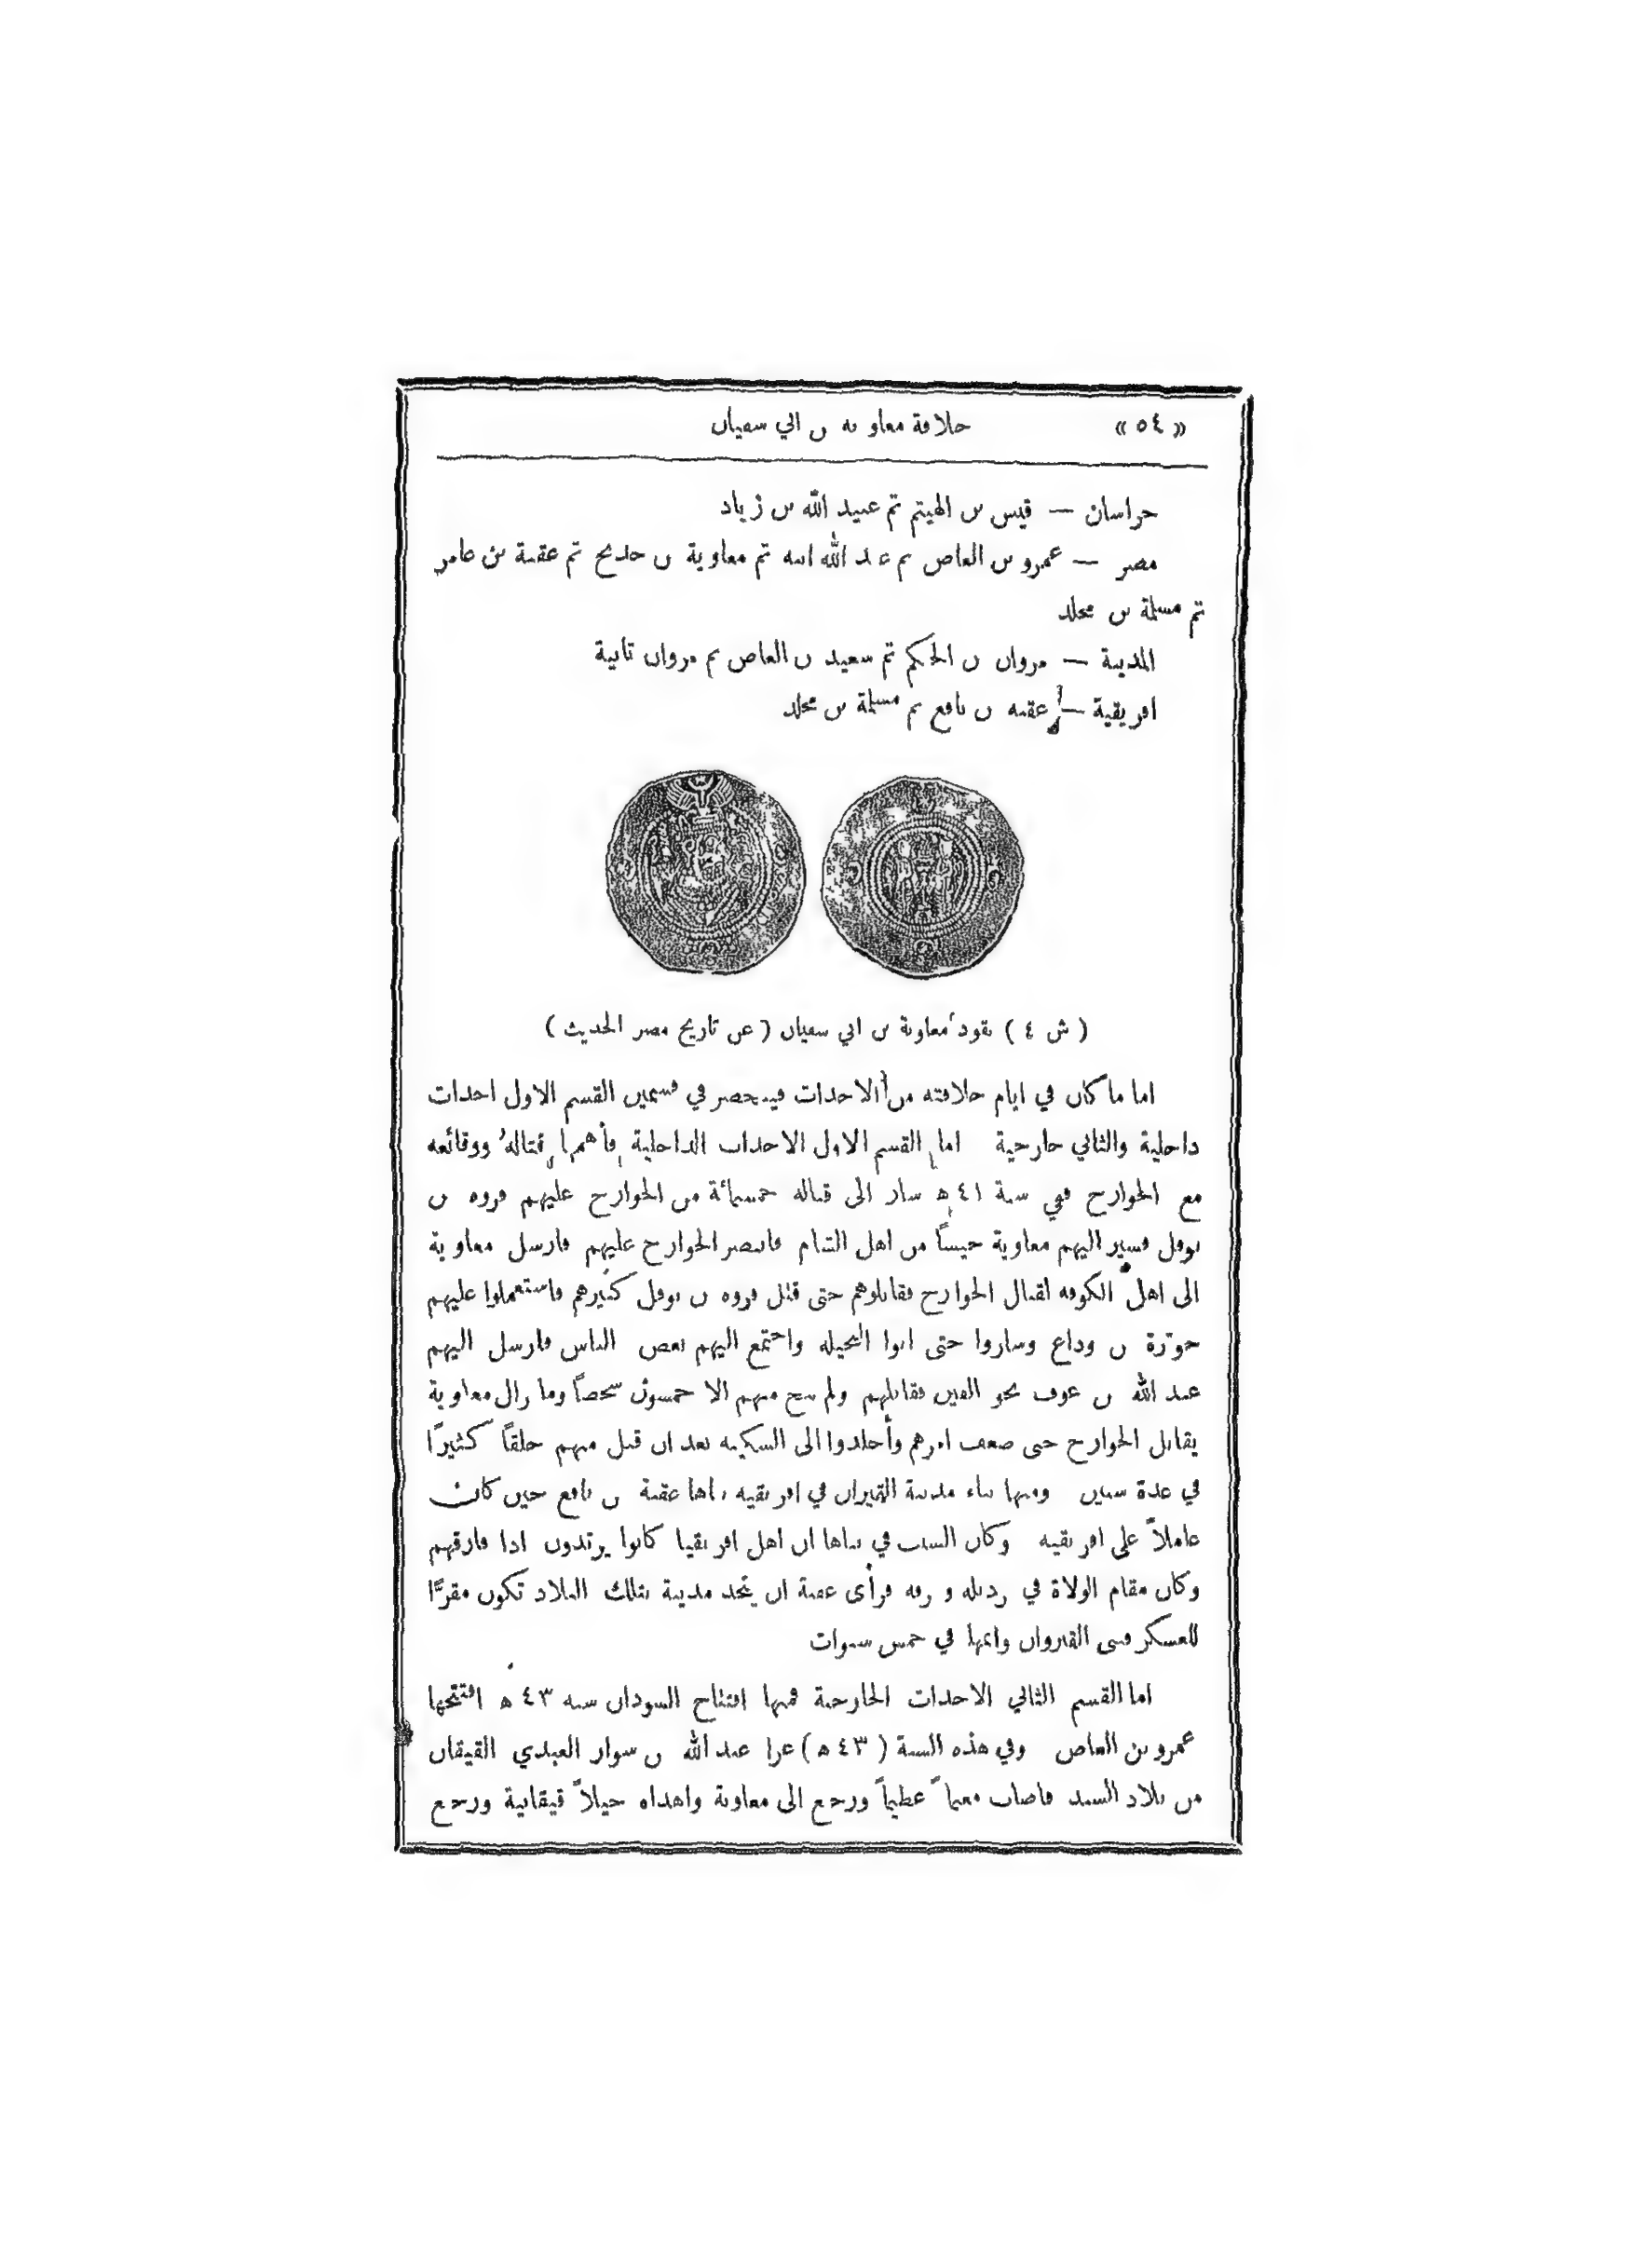 «٥٤» خلافة معاوية بن ابي سفيان
خراسان — قيس بن الهيثم ثم عبيد الله بن زياد
مصر — عمرو بن العاص ثم عبد الله ابنه ثم معاوية بن حديج ثم عقبة بن عامر
ثم مسلمة بن مخلد
المدينة — مروان بن الحكم ثم سعيد بن العاص ثم مروان ثانية
افريقية — عقبه بن نافع ثم مسلمة بن مخلد
( ش ٤ ) نقود معاوية بن ابي سفيان ( عن تاريخ مصر الحديث )
اما ما كان في ايام خلافته من الاحداث فينحصر في قسمين القسم الاول احداث
داخلية والثاني خارجية اما القسم الاول الاحداث الداخلية فأهمها قتالهُ ووقائعه
مع الخوارج ففي سنة ٤١ ه سار الى قتاله خمسمائة من الخوارج عليهم فروه بن
نوفل فسير اليهم معاوية جيشاً من اهل الشام فانتصر الخوارج عليهم فارسل معاوية
الى اهل الكوفه لقتال الخوارج فقاتلوهم حتى قتل فروه بن نوفل كثيرهم فاستعملوا عليهم
حوثرة بن وداع وساروا حتى اتوا النخيله واجتمع اليهم بعض الناس فارسل اليهم
عبد الله بن عوف نحو الفين فقاتلهم ولم ينج منهم الا خمسون شخصاً وما زال معاوية
يقاتل الخوارج حتى ضعف امرهم وأخلدوا الى السكينه بعد ان قتل منهم خلقاً كثيرًا
في عدة سنين ومنها بناء مدينة القيروان في افريقيه بناها عقبة بن نافع حين كان
عاملاً على افريقيه وكان السبب في بناها ان اهل افريقيا كانوا يرتدون اذا فارقهم
وكان مقام الولاة في زويله و برقه فرأى عقبة ان يتخذ مدينة بتلك البلاد تكون مقرًّا
للعسكر فبنى القيروان واتمها في خمس سنوات
اما القسم الثاني الاحداث الخارجية فمنها افتتاح السودان سنه ٤٣ ه افتتحها
عمرو بن العاص وفي هذه السنة ( ٤٣ ه ) غزا عبد الله بن سوار العبدي القيقان
من بلاد السند فاصاب مغنماً عظيماً ورجع الى معاوية واهداه خيلاً قيقانية ورجع